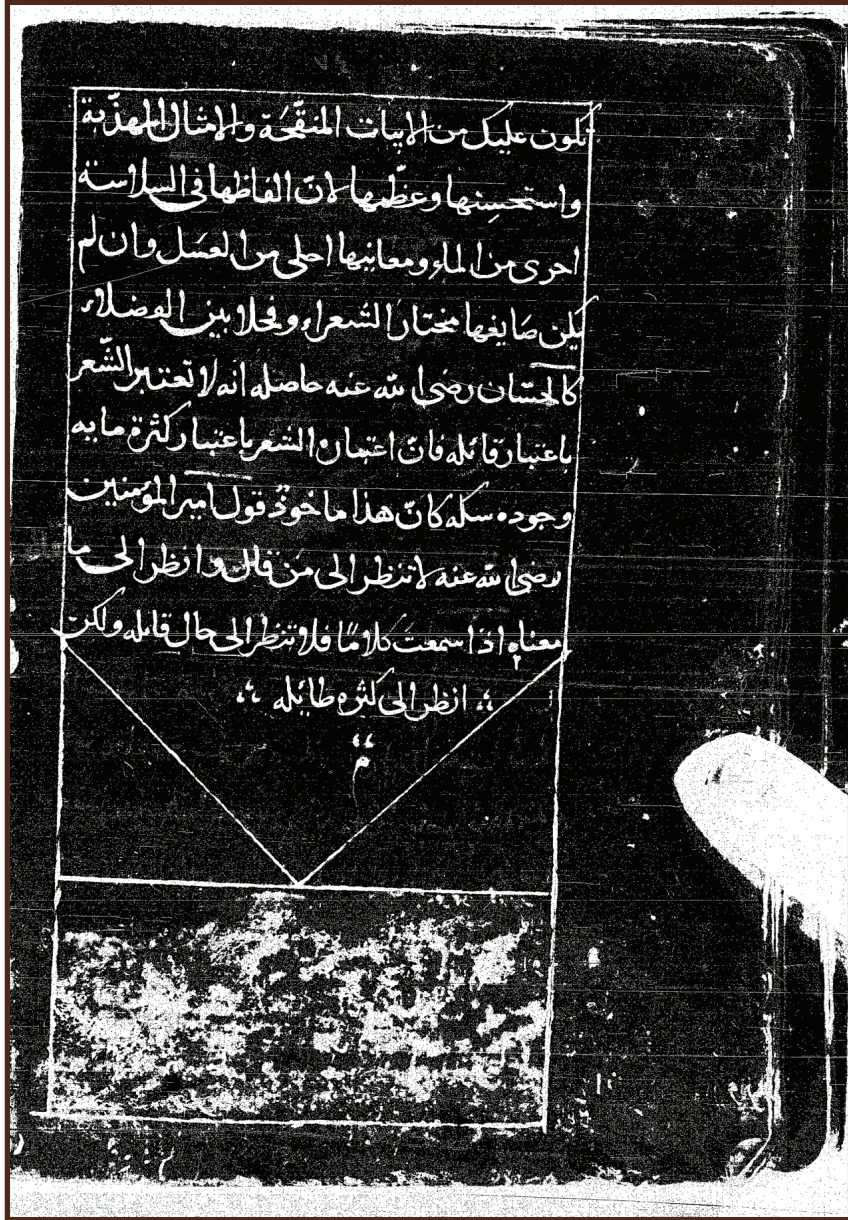 تلون عليك من الابيات المنقّحَة والامثال المهذّبة
واستحسِنها وعظّمها لانّ الفاظها فى السلاسة
اجرى من الماء ومعانيها احلى من العسَل وان لم
يكن صَايغها مختار الشعراء وفحلا بين الفضلاء
كالحسّان رضى الله عنه حاصله انه لا تعتبر الشّعر
باعتبار قائله فانّ اعتبار الشعر باعتبار كثرة ما به
وجوده سكه كانّ هذا ماخوذ قول امير المؤمنين
رضى الله عنه لا تنظر الى مَن قال وانظر الى ما
معناه اذا سمعت كلامًا فلا تنظر الى حال قايله ولكن
انظر الى كثره طايله
م